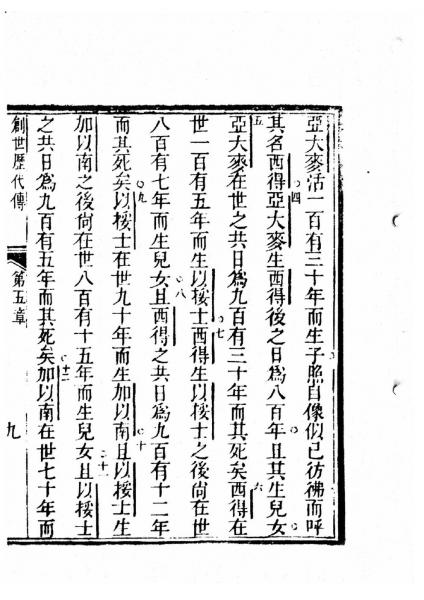 亞大麥活一百有三十年而生子照自像似己彷彿而呼
其名西得○四亞大麥生西得後之日爲八百年○且其生兒女○
五亞大麥在世之共日爲九百有三十年而其死矣○六西得在
世一百有五年而生以㧊士○七西得生以㧊士之後尚在世
八百有七年而生兒女○八且西得之共日爲九百有十二年
而其死矣○九以㧊士在世九十年而生加以南○十且以㧊士生
加以南之後尚在世八百有十五年而生兒女○十一且以㧊士
之共日爲九百有五年而其死矣○十二加以南在世七十年而
創世歷代傳 第五章 九